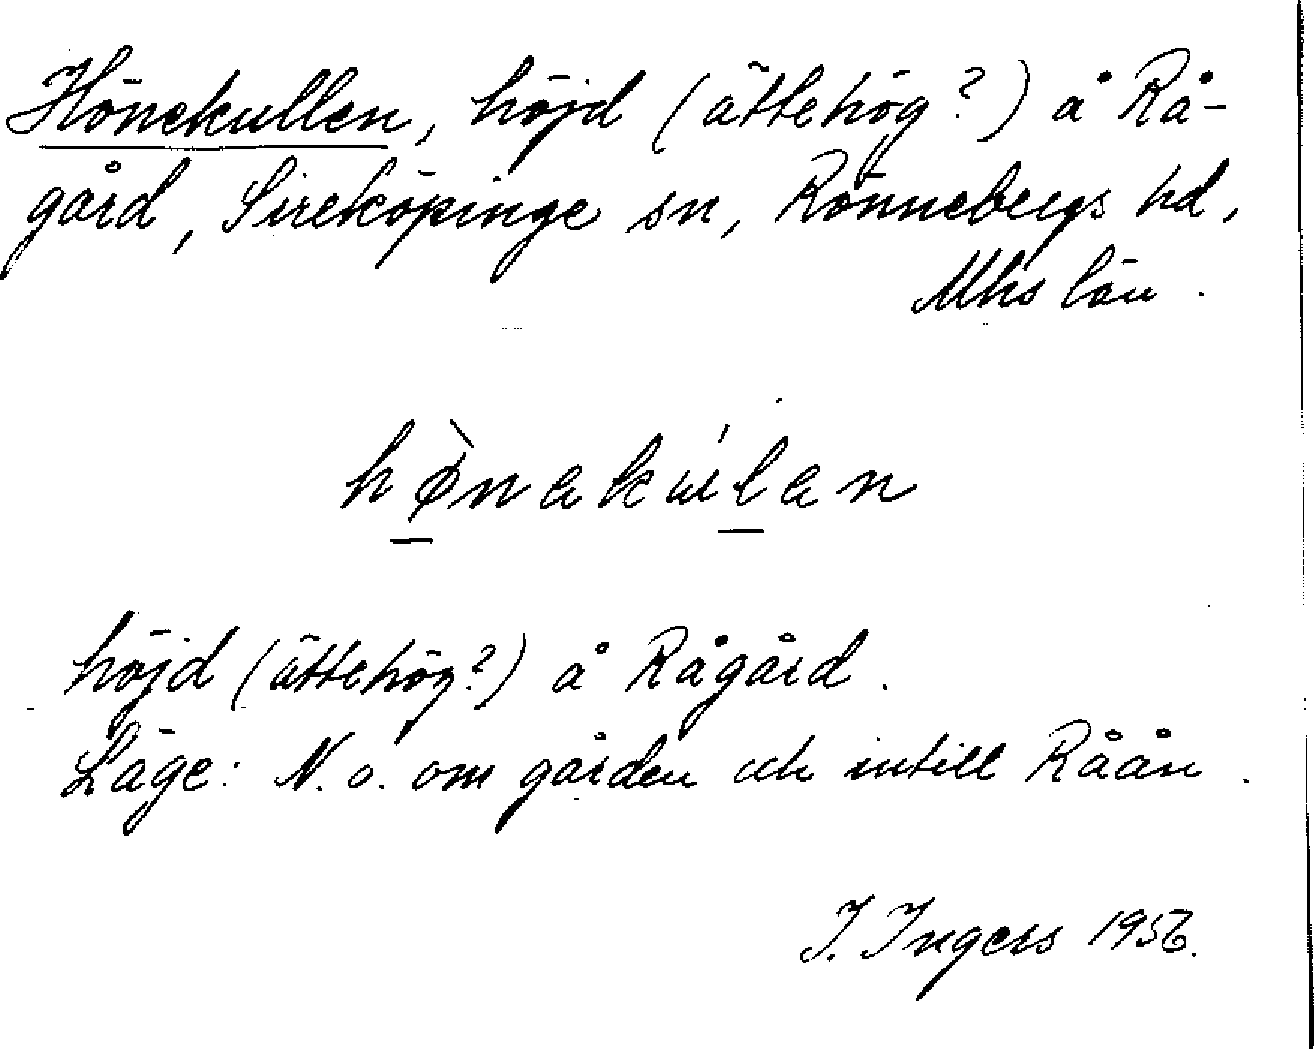 Hönekullen, höjd (ättehög?) å Rå-
gård, Sireköpinge sn, Rönnebergs hd,
Mhs län.
hø̀nakúlan
höjd (ättehög?) å Rågård.
Läge: N. o. om gården och intill Råån.
I. Ingers 1956.